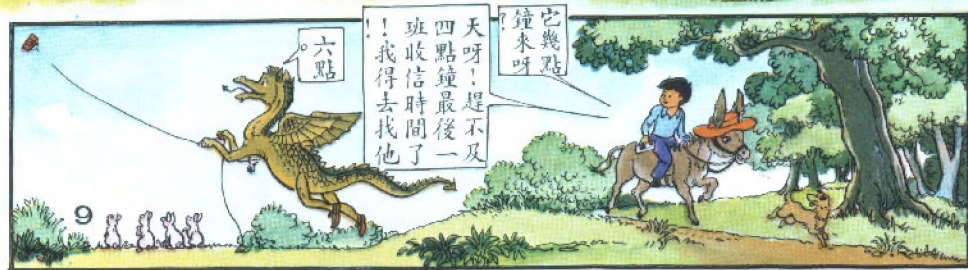 它幾點
鐘來呀
?
天呀!趕不及
四點鐘最後一
班收信時間了
!!我得去找他
六點
。
9